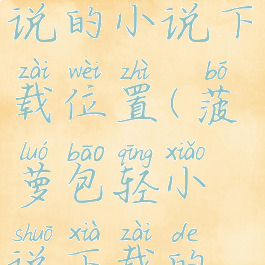 说的小说下
zài wèi zhì bō
载位置(菠
luó bāo qīng xiǎo
萝包轻小
shuō xià zài de
说下载的